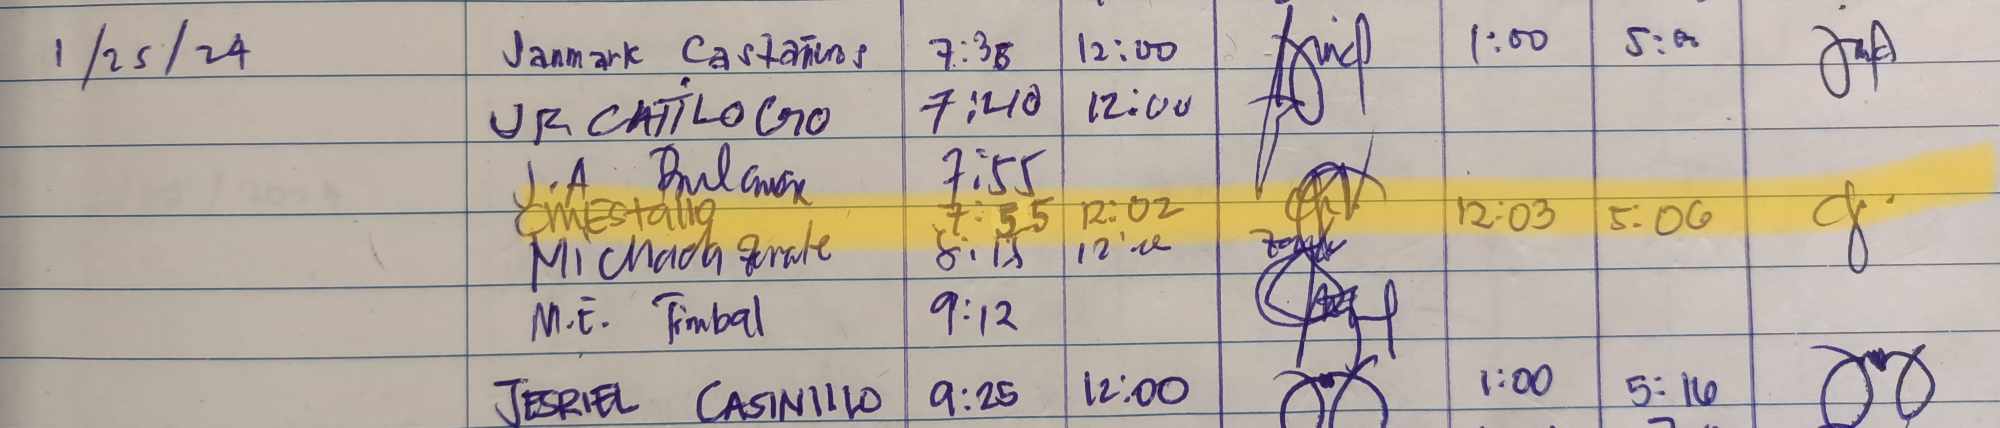 1/25/24 Janmark Castañeros 7:38 12:00 1:00 5:00
JR CATILOGO 7:40 12:00
J.A 7:55
CMEstallo 7:55 12:02 12:03 5:06
8:15
M.E. Timbal 9:12
JESRIEL CASINILLO 9:25 12:00 1:00 5:16